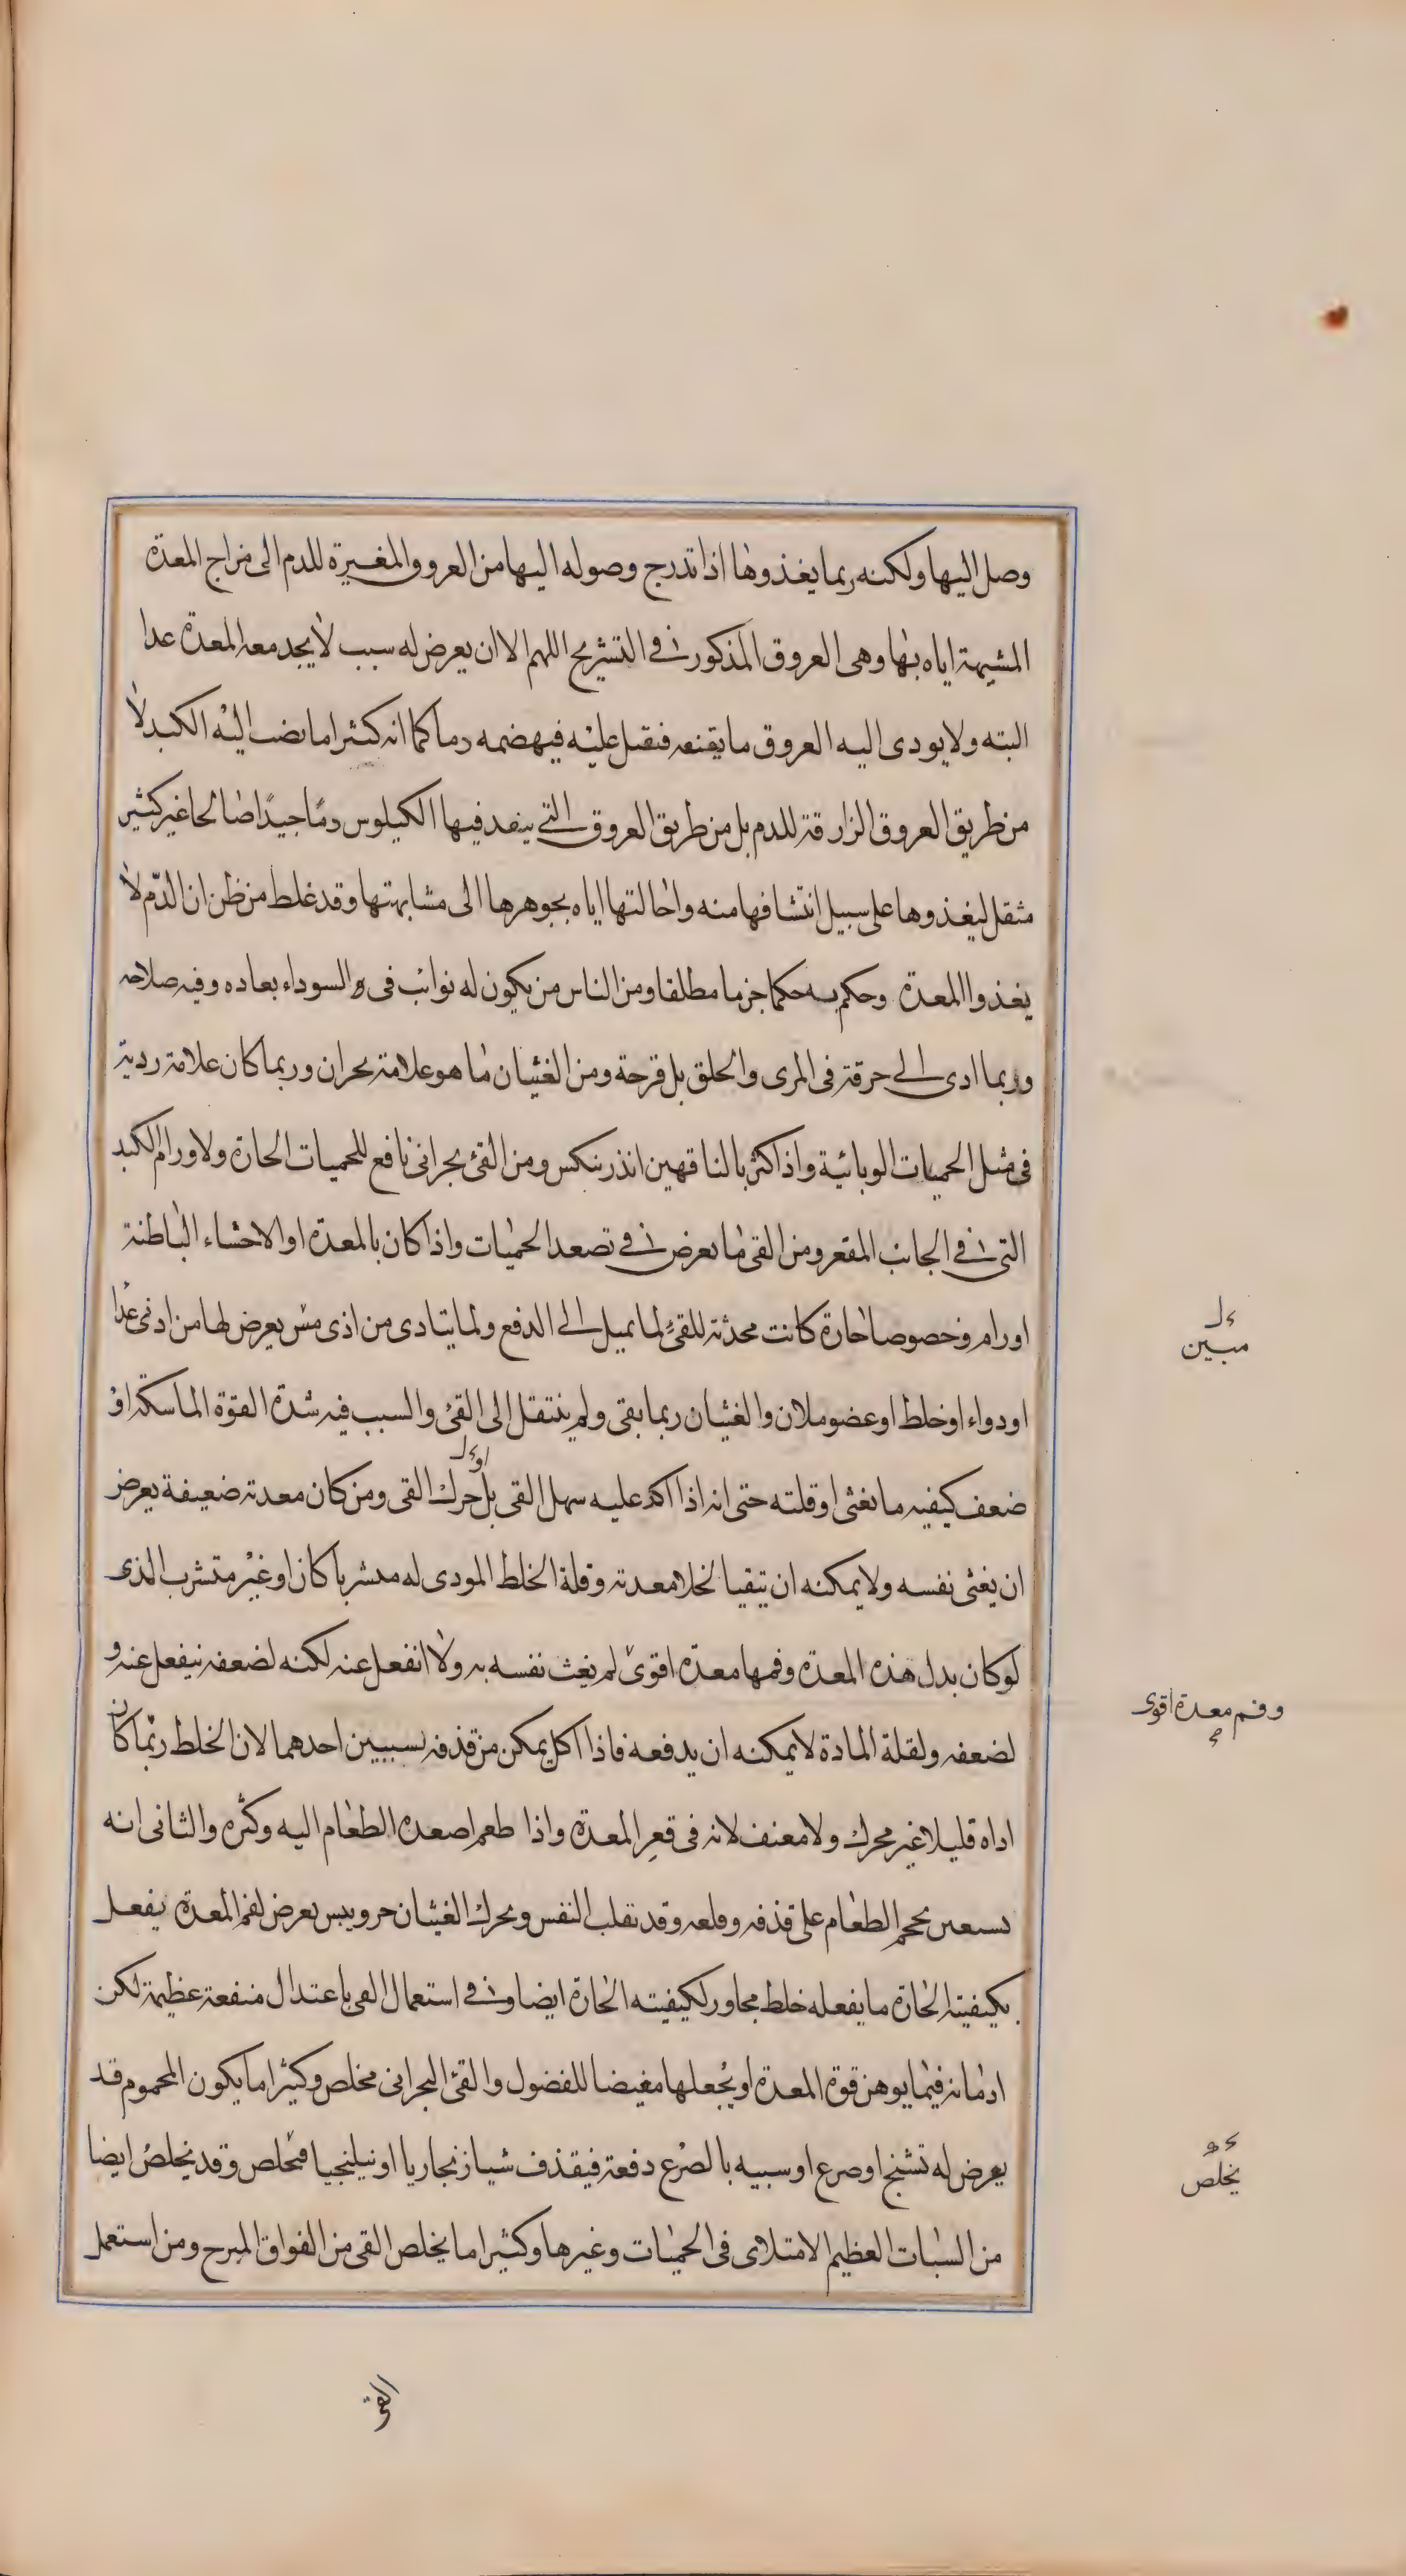 وصل اليها ولكنه ربما يغذوها اذا تدرج وصوله اليها من العروق المغيرة للدم الى مزاج المعدة
المشبهة اياه بها وهى العروق المذكور فى التشريح اللهم الا ان يعرض له سبب لا يجد معه المعدة غدا
البته ولا يودى اليه العروق ما يقنعه فتقبل عليه فيهضمه دما كما انه كثيرا ما يصب اليه الكبد لا
من طريق العروق الزارقة للدم بل من طريق العروق التى ينفد فيها الكيلوس دمًا جيدًا صالحا غير كثير
مثقل ليغذوها على سبيل انتشافها منه واحالتها اياه بجوهرها الى مشابهتها وقد غلط من ظن ان الدّم لا
يغذوا المعدة وحكم به حكما جزما مطلقا ومن الناس من يكون له نوائب فى السوداء بعاده وفيه صلاحه
وربما ادى الى حرقة فى المرى والحلق بل قرحة ومن الغثيان ما هو علامة بحران وربما كان علامة ردية
فى مثل الحميات الوبائية واذا كثر بالناقهين انذر بنكس ومن القئ بحرانى نافع للحميات الحارة ولاورام الكبد
التى فى الجانب المقعر ومن القى ما يعرض فى تصعد الحميات واذا كان بالمعدة او الاحشاء الباطنة
اورام وخصوصا حارة كانت محدثة للقئ لما يميل الى الدفع ولما يتادى من اذى مس يعرض لها من ادنى غدا
او دواء او خلط او عضو ملان والغثيان ربما بقى ولم ينتقل الى القئ والسبب فيه شدة القوة الماسكة او
او
ضعف كيفيه ما يغثى او قلته حتى انه اذا اكل عليه سهل القى بل حرك القى ومن كان معدته ضعيفة يعرض
ان يغثى نفسه ولا يمكنه ان يتقيا لخلا معدته وقلة الخلط المودى له متشربا كان او غير متشرب الذى
لو كان بدل هذه المعدة وفمها معدة اقوى لم يغث نفسه به ولا انفعل عنه لكنه لضعفه ينفعل عنه و
لضعفه ولقلة المادة لا يمكنه ان يدفعه فاذا اكل يمكن من قذفه بسببين احدهما لان الخلط ربما كان
اداه قليلا غير محرك ولا معنف لانه فى قعر المعدة واذا طعم اصعده الطعام اليه وكثره والثانى انه
يستعين بحجم الطعام على قذفه وقلعه وقد يقلب النفس ويحرك الغثيان حر ويبس يعرض لفم المعدة يفعل
بكيفيته الحارة ما يفعله خلط مجاور لكيفيته الحارة ايضا وفى استعمال القى باعتدال منفعة عظيمة لكن
ادمانه فيما يوهن قوة المعدة او يجعلها مغيضا للفضول والقئ البحرانى مخلص وكثيرا ما يكون المحموم قد
يعرض له تشنج او صرع او سبيه بالصرع دفعة فيقذف شيا زنجاريا او نيلنجيا فتخلص وقد يخلص ايضا
من السبات العظيم الامتلاى فى الحميات وغيرها وكثيرا ما يخلص القى من الفواق المبرح ومن استعمل
مبين
وفم معدة اقوى
يخلص
القى